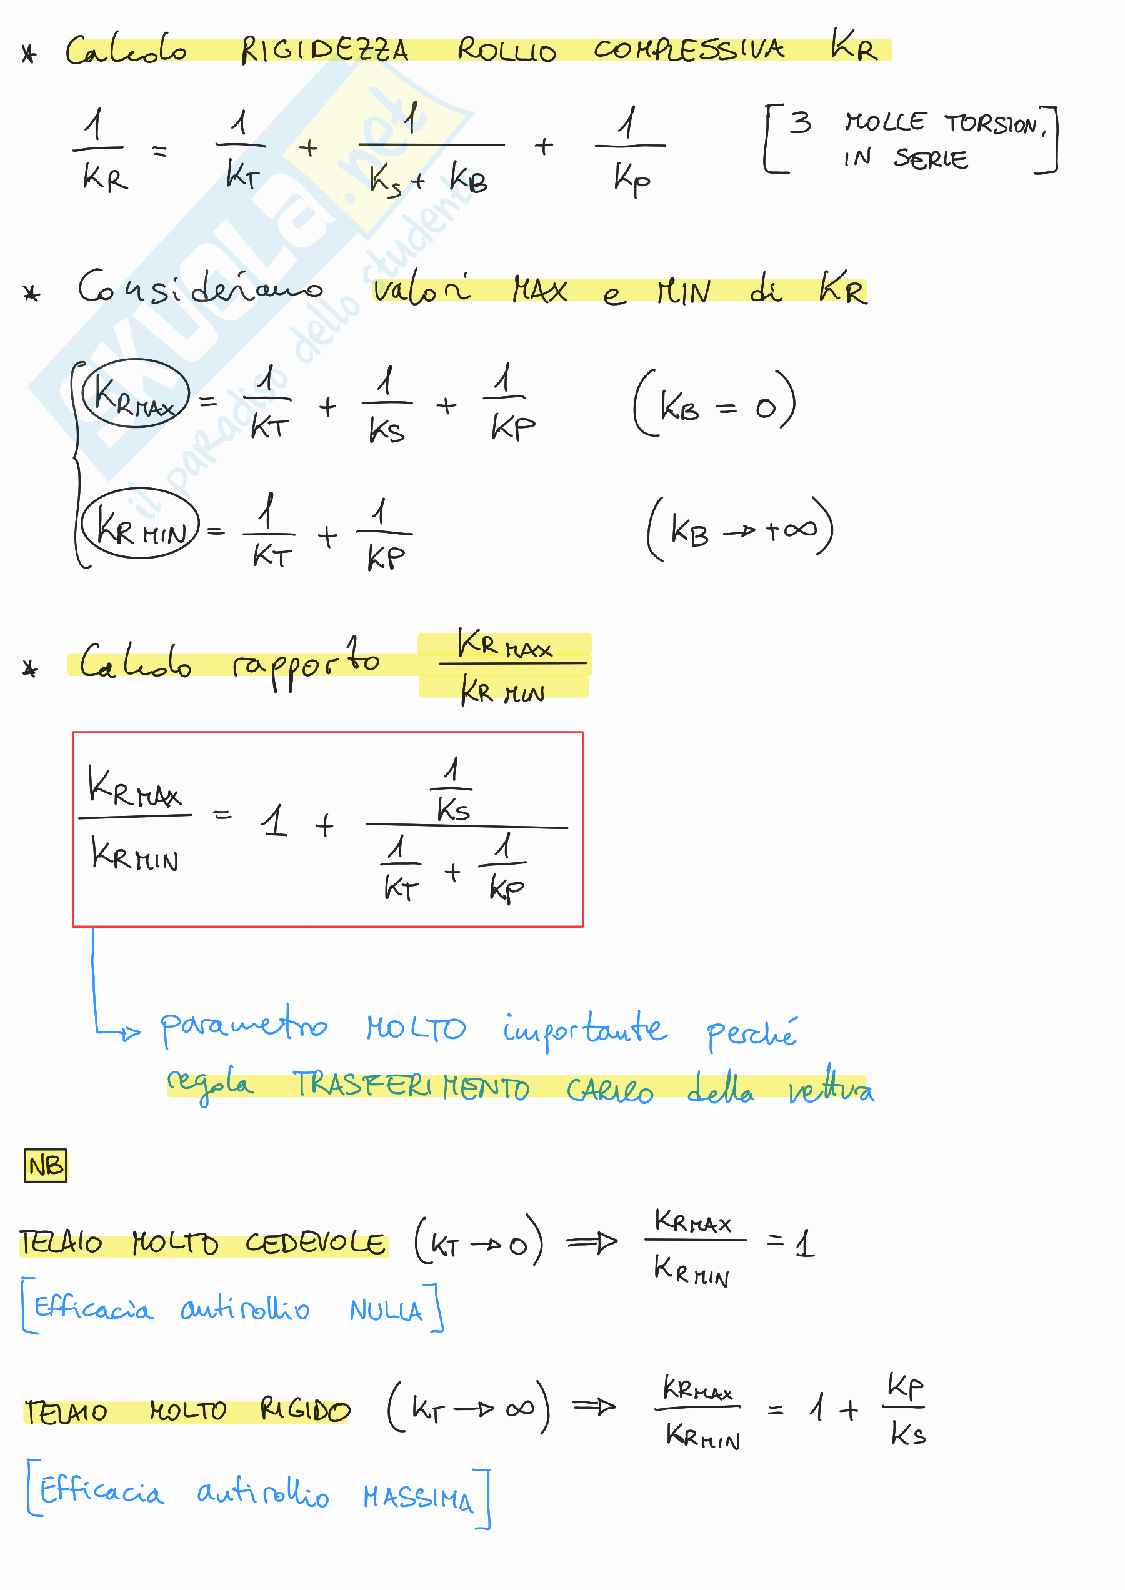 * Calcolo RIGIDEZZA ROLLIO COMPLESSIVA KR
1/KR = 1/KT + 1/(Ks + KB) + 1/Kp [3 MOLLE TORSION. IN SERIE]
* Consideriamo valori MAX e MIN di KR
KR MAX = 1/KT + 1/KS + 1/KP (KB = 0)
KR MIN = 1/KT + 1/KP (KB → +∞)
* Calcolo rapporto KR MAX / KR MIN
KR MAX / KR MIN = 1 + (1/KS) / (1/KT + 1/KP)
parametro MOLTO importante perché
regola TRASFERIMENTO CARICO della vettura
NB
TELAIO MOLTO CEDEVOLE (KT → 0) ⇒ KR MAX / KR MIN = 1
[Efficacia antirollio NULLA]
TELAIO MOLTO RIGIDO (KT → ∞) ⇒ KR MAX / KR MIN = 1 + KP/KS
[Efficacia antirollio MASSIMA]
SKUOLA.net
il paradiso dello studente